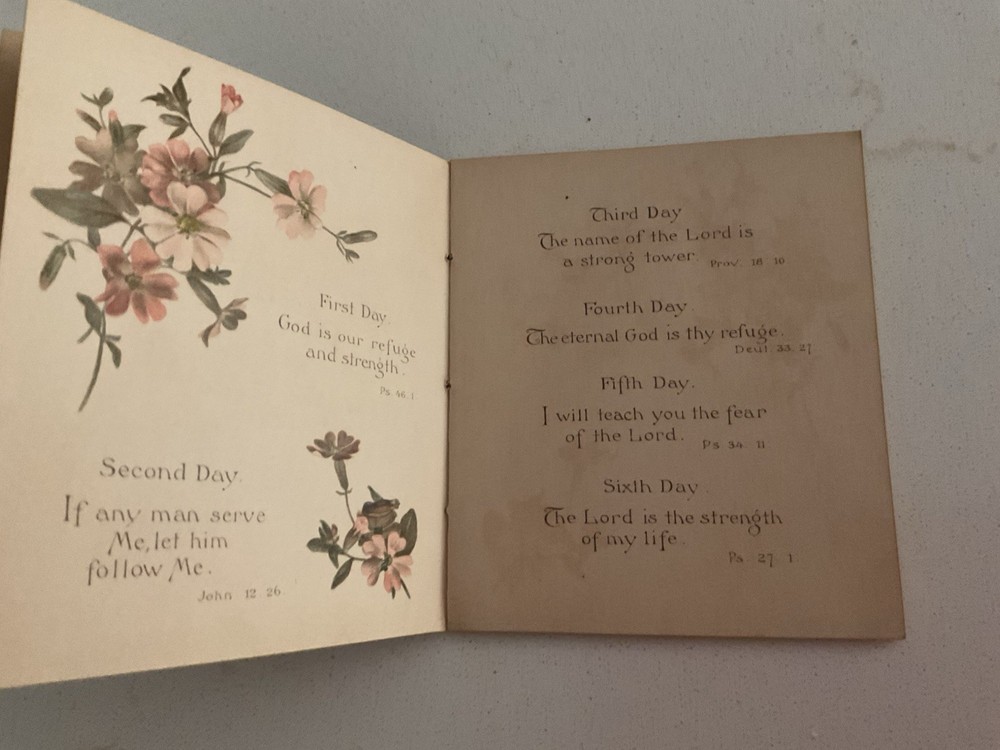 First Day.
God is our refuge
and strength.
Ps. 46. 1
Second Day.
If any man serve
Me, let him
follow Me.
John 12 26
Third Day
The name of the Lord is
a strong tower. Prov. 18 10
Fourth Day.
The eternal God is thy refuge.
Deut. 33. 27
Fifth Day.
I will teach you the fear
of the Lord. Ps 34. 11
Sixth Day.
The Lord is the strength
of my life.
Ps. 27. 1